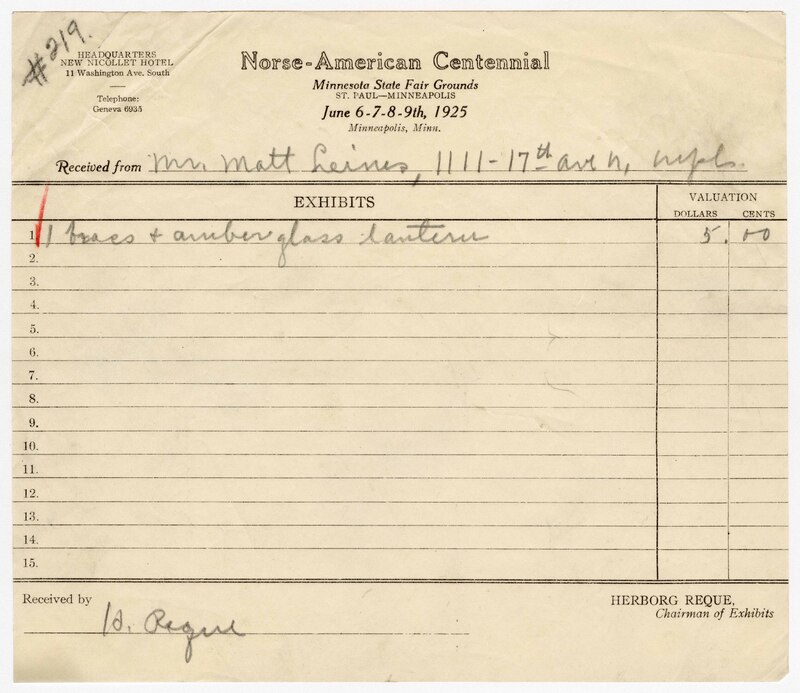 #219.
HEADQUARTERS
NEW NICOLLET HOTEL
11 Washington Ave. South
Telephone:
Geneva 6935
Norse-American Centennial
Minnesota State Fair Grounds
ST. PAUL—MINNEAPOLIS
June 6-7-8-9th, 1925
Minneapolis, Minn.
Received from Mr. Matt Leines, 1111-17th ave N, Mpls.
EXHIBITS
VALUATION
DOLLARS CENTS
1. 1 brass + amber glass lantern 5.00
2.
3.
4.
5.
6.
7.
8.
9.
10.
11.
12.
13.
14.
15.
Received by H. Reque
HERBORG REQUE,
Chairman of Exhibits